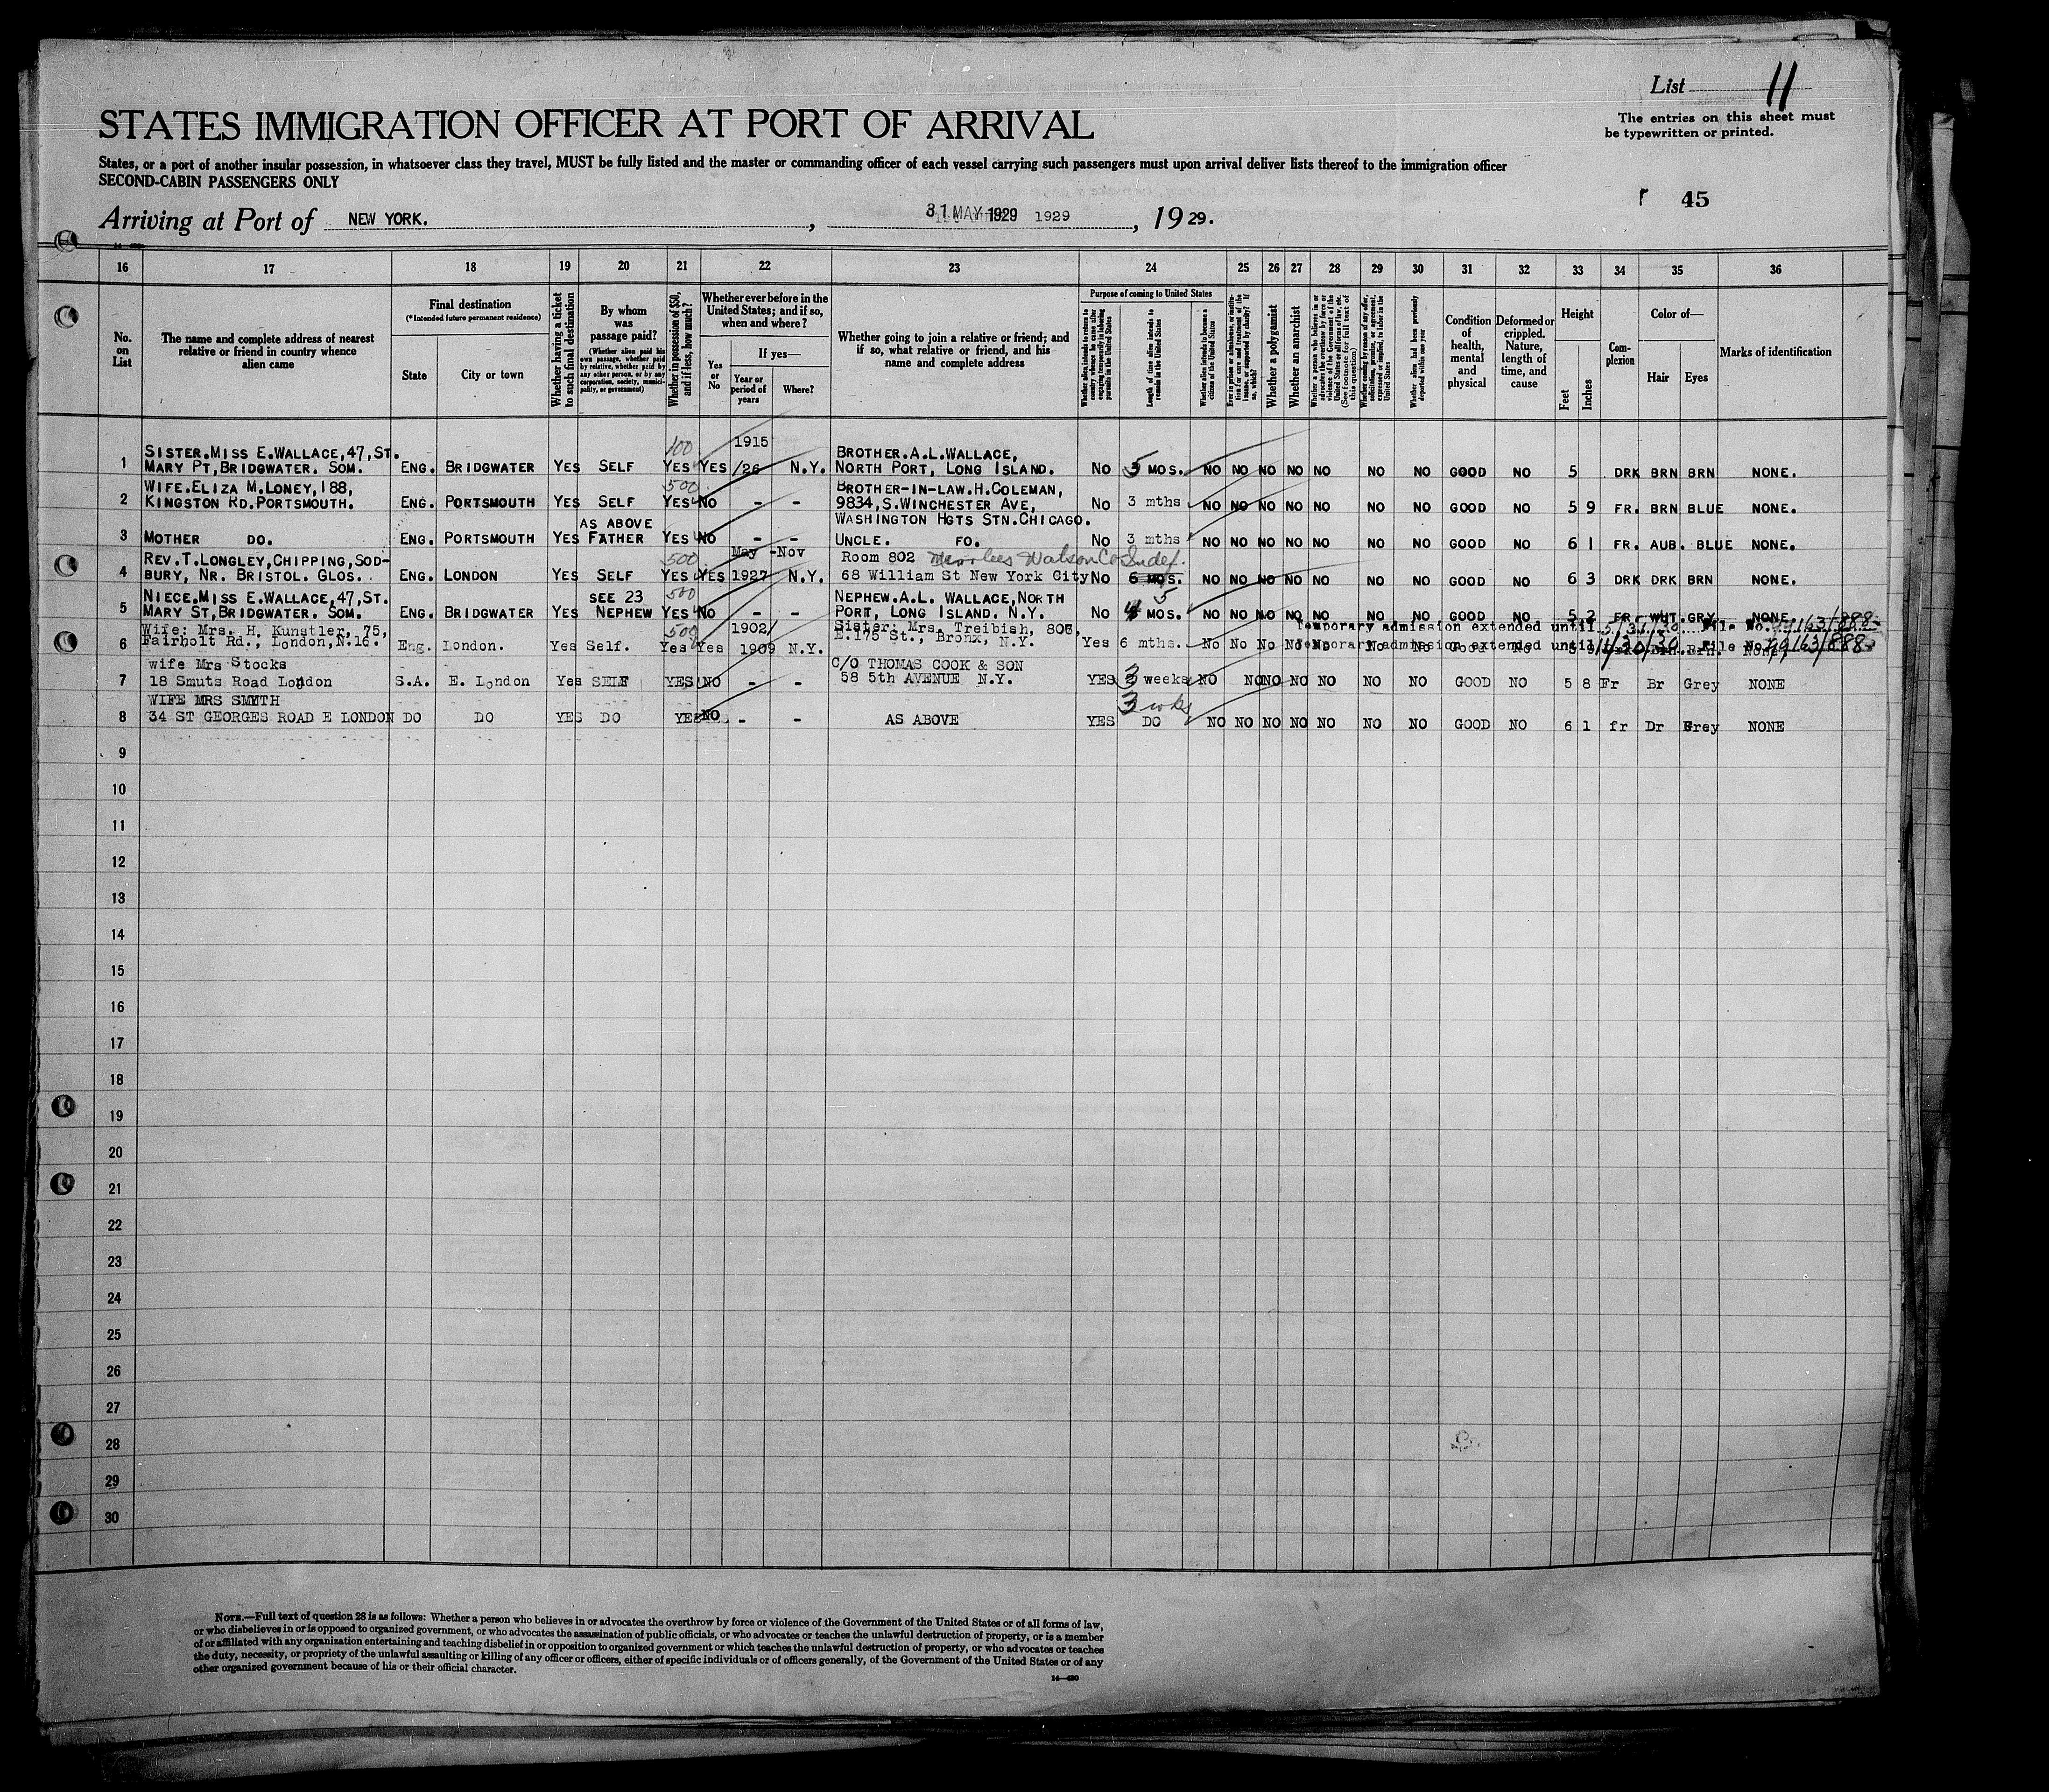 List 11
The entries on this sheet must
be typewritten or printed.
STATES IMMIGRATION OFFICER AT PORT OF ARRIVAL
States, or a port of another insular possession, in whatsoever class they travel, MUST be fully listed and the master or commanding officer of each vessel carrying such passengers must upon arrival deliver lists thereof to the immigration officer
SECOND-CABIN PASSENGERS ONLY
45
Arriving at Port of NEW YORK. , 31 MAY 1929 1929 , 19 29.
16 17 18 19 20 21 22 23 24 25 26 27 28 29 30 31 32 33 34 35 36
No. on List
The name and complete address of nearest relative or friend in country whence alien came
Final destination
(*Intended future permanent residence)
State
City or town
Whether having a ticket to such final destination
By whom was passage paid?
(Whether alien paid his own passage, whether paid by relative, whether paid by any other person, or by any corporation, society, municipality, or government)
Whether in possession of $50, and if less, how much?
Whether ever before in the United States; and if so, when and where?
Yes or No
If yes—
Year or period of years
Where?
Whether going to join a relative or friend; and if so, what relative or friend, and his name and complete address
Purpose of coming to United States
Whether alien intends to return to country whence he came after engaging temporarily in laboring pursuits in the United States
Length of time alien intends to remain in the United States
Whether alien intends to become a citizen of the United States
Ever in prison or almshouse, or institution for care and treatment of the insane, or supported by charity? If so, which?
Whether a polygamist
Whether an anarchist
Whether a person who believes in or advocates the overthrow by force or violence of the Government of the United States or all forms of law, etc. (See footnote for full text of this question)
Whether coming by reason of any offer, solicitation, promise, or agreement, expressed or implied, to labor in the United States
Whether alien had been previously deported within one year
Condition of health, mental and physical
Deformed or crippled. Nature, length of time, and cause
Height
Feet
Inches
Complexion
Color of—
Hair
Eyes
Marks of identification
100 1915
SISTER.MISS E.WALLACE,47,ST. BROTHER.A.L.WALLACE,
1 MARY PT,BRIDGWATER. SOM. ENG. BRIDGWATER YES SELF YES YES /26 N.Y. NORTH PORT, LONG ISLAND. NO 5 MOS. NO NO NO NO NO NO NO GOOD NO 5 DRK BRN BRN NONE.
WIFE.ELIZA M.LONEY,188, 500 BROTHER-IN-LAW.H.COLEMAN,
2 KINGSTON RD.PORTSMOUTH. ENG. PORTSMOUTH YES SELF YES NO - - 9834,S.WINCHESTER AVE, NO 3 mths NO NO NO NO NO NO NO GOOD NO 5 9 FR. BRN BLUE NONE.
AS ABOVE WASHINGTON HGTS STN.CHICAGO.
3 MOTHER DO. ENG. PORTSMOUTH YES FATHER YES NO - - UNCLE. FO. NO 3 mths NO NO NO NO NO NO NO GOOD NO 6 1 FR. AUB. BLUE NONE.
REV.T.LONGLEY,CHIPPING,SOD- 500 May -Nov Room 802 Watson Co Indef.
4 BURY, NR. BRISTOL. GLOS. ENG. LONDON YES SELF YES YES 1927 N.Y. 68 William St New York City NO 6 MOS. NO NO NO NO NO NO NO GOOD NO 6 3 DRK DRK BRN NONE.
NIECE.MISS E.WALLACE,47,ST. SEE 23 500 NEPHEW.A.L. WALLACE,NORTH 5
5 MARY ST,BRIDGWATER. SOM. ENG. BRIDGWATER YES NEPHEW YES NO - - PORT, LONG ISLAND. N.Y. NO 4 MOS. NO NO NO NO NO NO NO GOOD NO 5 2 FR. WHT GRY NONE.
Temporary admission extended until 5/31/30 File No. 99163/888
Wife: Mrs. H. Kunstler, 75, 500 1902/ Sister: Mrs. Treibish, 805,
6 Fairholt Rd., London,N.16. Eng. London. Yes Self. Yes Yes 1909 N.Y. E.175 St., Bronx, N.Y. Yes 6 mths. No No No No No No No Good No
Temporary admission extended until 11/30/30. File No. 99163/888
wife Mrs Stocks C/O THOMAS COOK & SON
7 18 Smuts Road London S.A. E. London Yes SELF YES NO - - 58 5th AVENUE N.Y. YES 3 weeks NO NO NO NO NO NO NO GOOD NO 5 8 Fr Br Grey NONE
WIFE MRS SMYTH 3 wks
8 34 ST GEORGES ROAD E LONDON DO DO YES DO YES NO - - AS ABOVE YES DO NO NO NO NO NO NO NO GOOD NO 6 1 fr Dr Grey NONE
9
10
11
12
13
14
15
16
17
18
19
20
21
22
23
24
25
26
27
28
29
30
NOTE.—Full text of question 28 is as follows: Whether a person who believes in or advocates the overthrow by force or violence of the Government of the United States or of all forms of law,
or who disbelieves in or is opposed to organized government, or who advocates the assassination of public officials, or who advocates or teaches the unlawful destruction of property, or is a member
of or affiliated with any organization entertaining and teaching disbelief in or opposition to organized government or which teaches the unlawful destruction of property, or who advocates or teaches
the duty, necessity, or propriety of the unlawful assaulting or killing of any officer or officers, either of specific individuals or of officers generally, of the Government of the United States or of any
other organized government because of his or their official character.
14—480